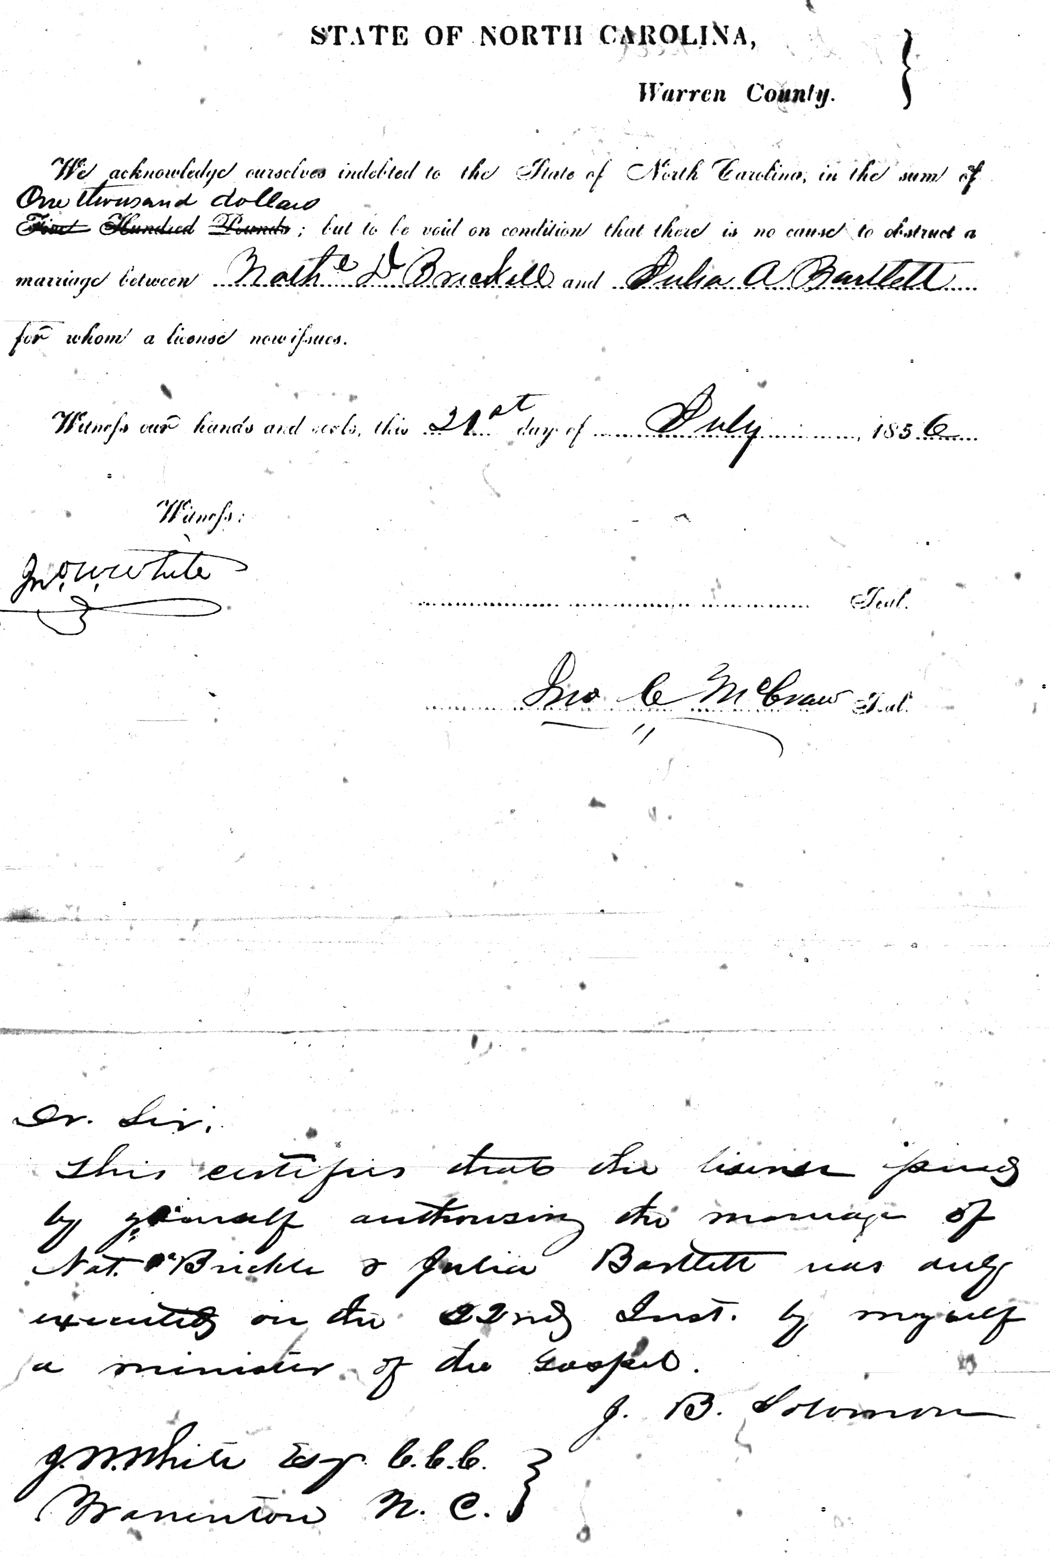 STATE OF NORTH CAROLINA, }
Warren County.
We acknowledge ourselves indebted to the State of North Carolina, in the sum of
One thousand dollars
Five Hundred Pounds; but to be void on condition that there is no cause to obstruct a
marriage between Nathl D Brickell and Julia A Bartlett
for whom a license now issues.
Witness our hands and seals, this 21st day of July, 1856
Witness:
Jno. W. White
Seal.
Jno C McCraw Seal.
Dr. Sir;
This certifies that the license issued
by yourself authorising the marriage of
Nat. Brickle & Julia Bartlett was duly
executed on the 22nd Inst. by myself
a minister of the Gospel.
J. B. Solomon
J. W. White Esqr. C.C.C. }
Warrenton N. C.